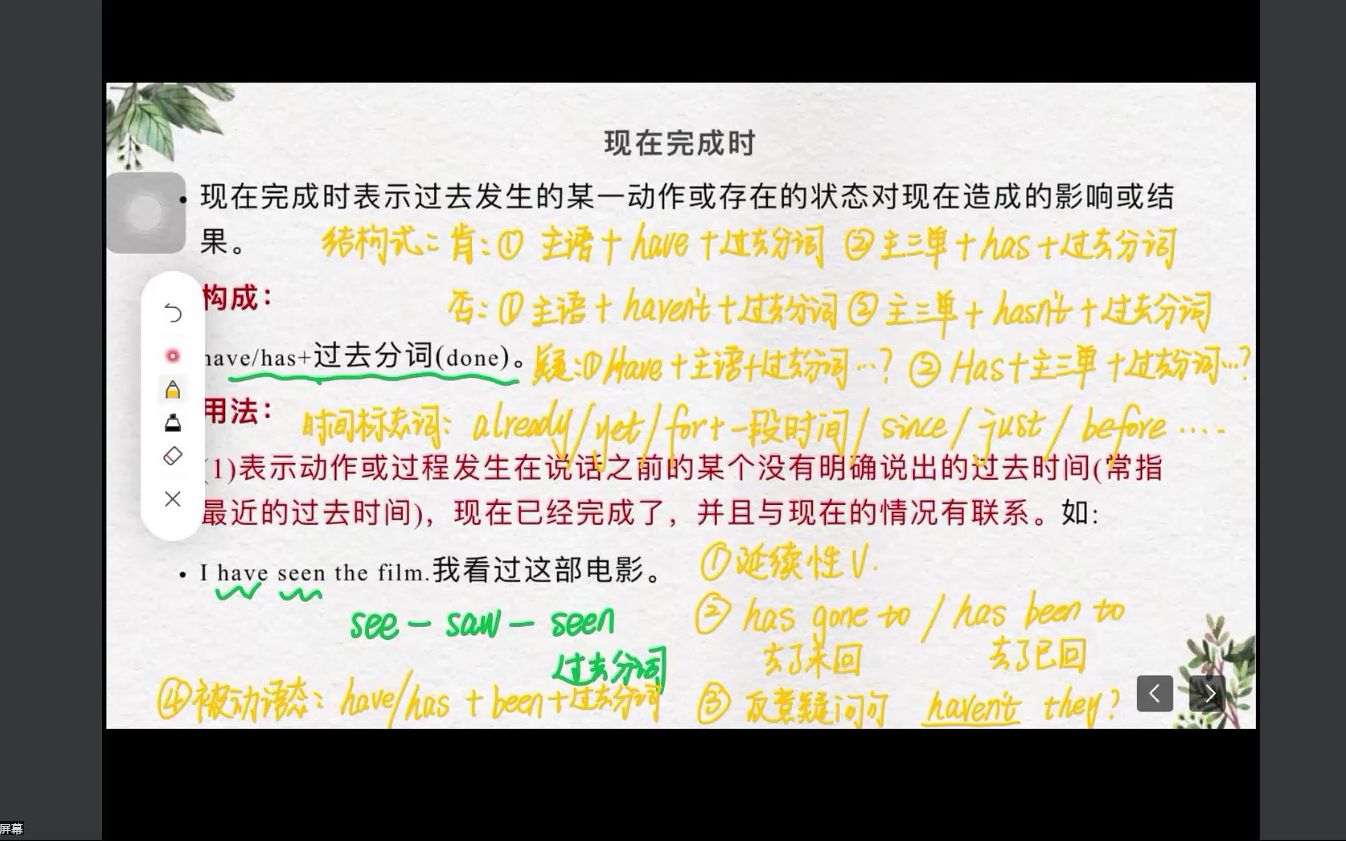 现在完成时
现在完成时表示过去发生的某一动作或存在的状态对现在造成的影响或结
果。
结构式:肯:① 主语+have+过去分词 ②主三单+has+过去分词
构成：
否:①主语+haven't+过去分词②主三单+hasn't+过去分词
have/has+过去分词(done)。
疑:①Have+主语+过去分词…? ②Has+主三单+过去分词…?
用法：
时间标志词: already/yet/for+一段时间/since/just/before……
(1)表示动作或过程发生在说话之前的某个没有明确说出的过去时间(常指
最近的过去时间)，现在已经完成了，并且与现在的情况有联系。如:
①延续性V.
• I have seen the film.我看过这部电影。
see－saw－seen
过去分词
② has gone to / has been to
去了未回 去了已回
④被动语态: have/has + been+过去分词
③ 反意疑问句 haven't they?
屏幕